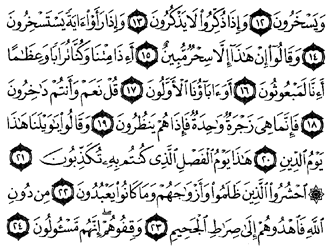 وَيَسْخَرُونَ ١٢ وَإِذَا ذُكِّرُوا۟ لَا يَذْكُرُونَ ١٣ وَإِذَا رَأَوْا۟ ءَايَةً يَسْتَسْخِرُونَ
١٤ وَقَالُوٓا۟ إِنْ هَٰذَآ إِلَّا سِحْرٌ مُّبِينٌ ١٥ أَءِذَا مِتْنَا وَكُنَّا تُرَابًا وَعِظَٰمًا
أَءِنَّا لَمَبْعُوثُونَ ١٦ أَوَءَابَآؤُنَا ٱلْأَوَّلُونَ ١٧ قُلْ نَعَمْ وَأَنتُمْ دَٰخِرُونَ
١٨ فَإِنَّمَا هِىَ زَجْرَةٌ وَٰحِدَةٌ فَإِذَا هُمْ يَنظُرُونَ ١٩ وَقَالُوا۟ يَٰوَيْلَنَا هَٰذَا
يَوْمُ ٱلدِّينِ ٢٠ هَٰذَا يَوْمُ ٱلْفَصْلِ ٱلَّذِى كُنتُم بِهِۦ تُكَذِّبُونَ ٢١
۞ ٱحْشُرُوا۟ ٱلَّذِينَ ظَلَمُوا۟ وَأَزْوَٰجَهُمْ وَمَا كَانُوا۟ يَعْبُدُونَ ٢٢ مِن دُونِ
ٱللَّهِ فَٱهْدُوهُمْ إِلَىٰ صِرَٰطِ ٱلْجَحِيمِ ٢٣ وَقِفُوهُمْ ۖ إِنَّهُم مَّسْـُٔولُونَ ٢٤